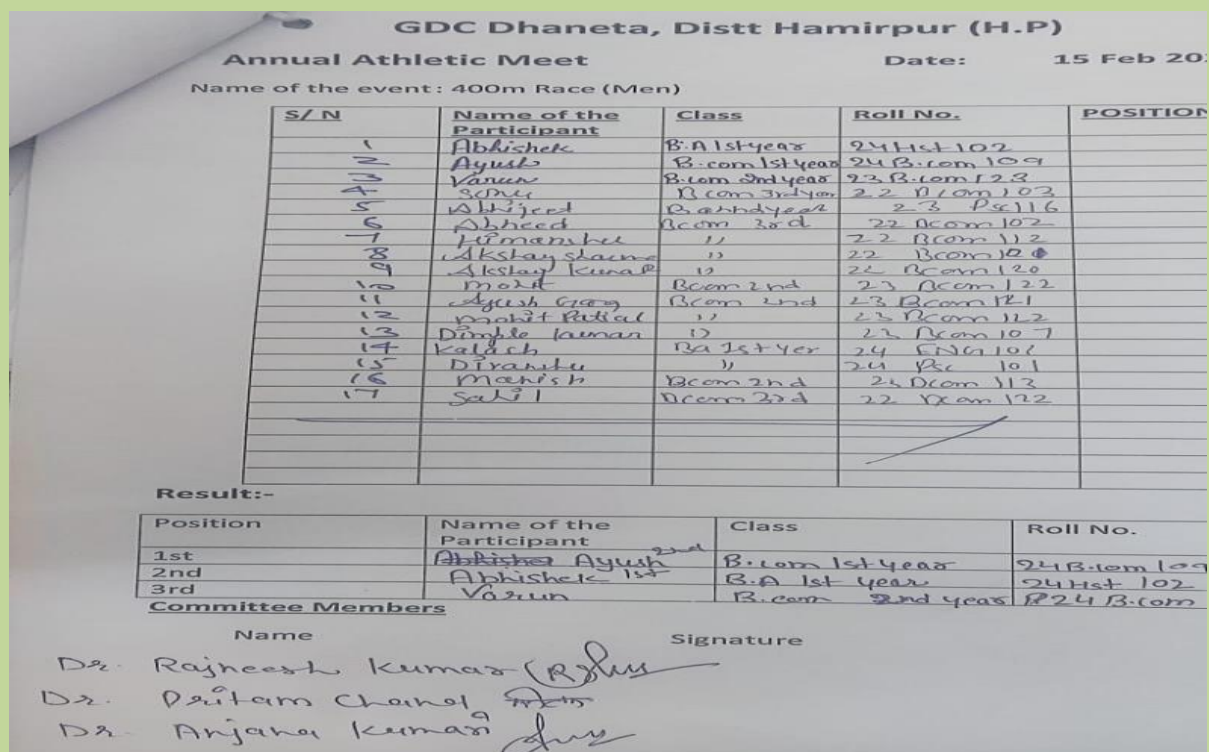 GDC Dhaneta, Distt Hamirpur (H.P)
Annual Athletic Meet Date: 15 Feb 20
Name of the event: 400m Race (Men)
S/N Name of the Participant Class Roll No. POSITION
1 Abhishek B.A 1st year 24Hst 102
2 Ayush B.com 1st year 24 B.com 109
3 Varun B.com 2nd year 23 B.com 123
4 Bcom 3rd year 22 Bcom 103
5 Abhijeet 23 Psc 116
6 Bcom 3rd 22 Bcom 102
7 Himanshu " 22 Bcom 112
8 Akshay Sharma " 22 Bcom
9 Akshay Kumar " 22 Bcom 120
10 Mohit Bcom 2nd 23 Bcom 122
11 Ayush Garg Bcom 2nd 23 Bcom 121
12 Mohit Patial " 23 Bcom
13 Dimple Kumar " 23 Bcom 107
14 Kalash Ba 1st yer 24 ENG
15 " 24 Psc 101
16 Manish Bcom 2nd 23 Bcom 113
17 Sahil Bcom 3rd 22 Bcom 122
Result:-
Position Name of the Participant Class Roll No.
1st Abhishek Ayush 2nd B.com 1st year 24 B.com 109
2nd Abhishek 1st B.A 1st year 24 Hst 102
3rd Varun B.com 2nd year 24 B.com
Committee Members
Name Signature
Dr. Rajneesh Kumar
Dr. Pritam Chand
Dr. Anjana Kumari